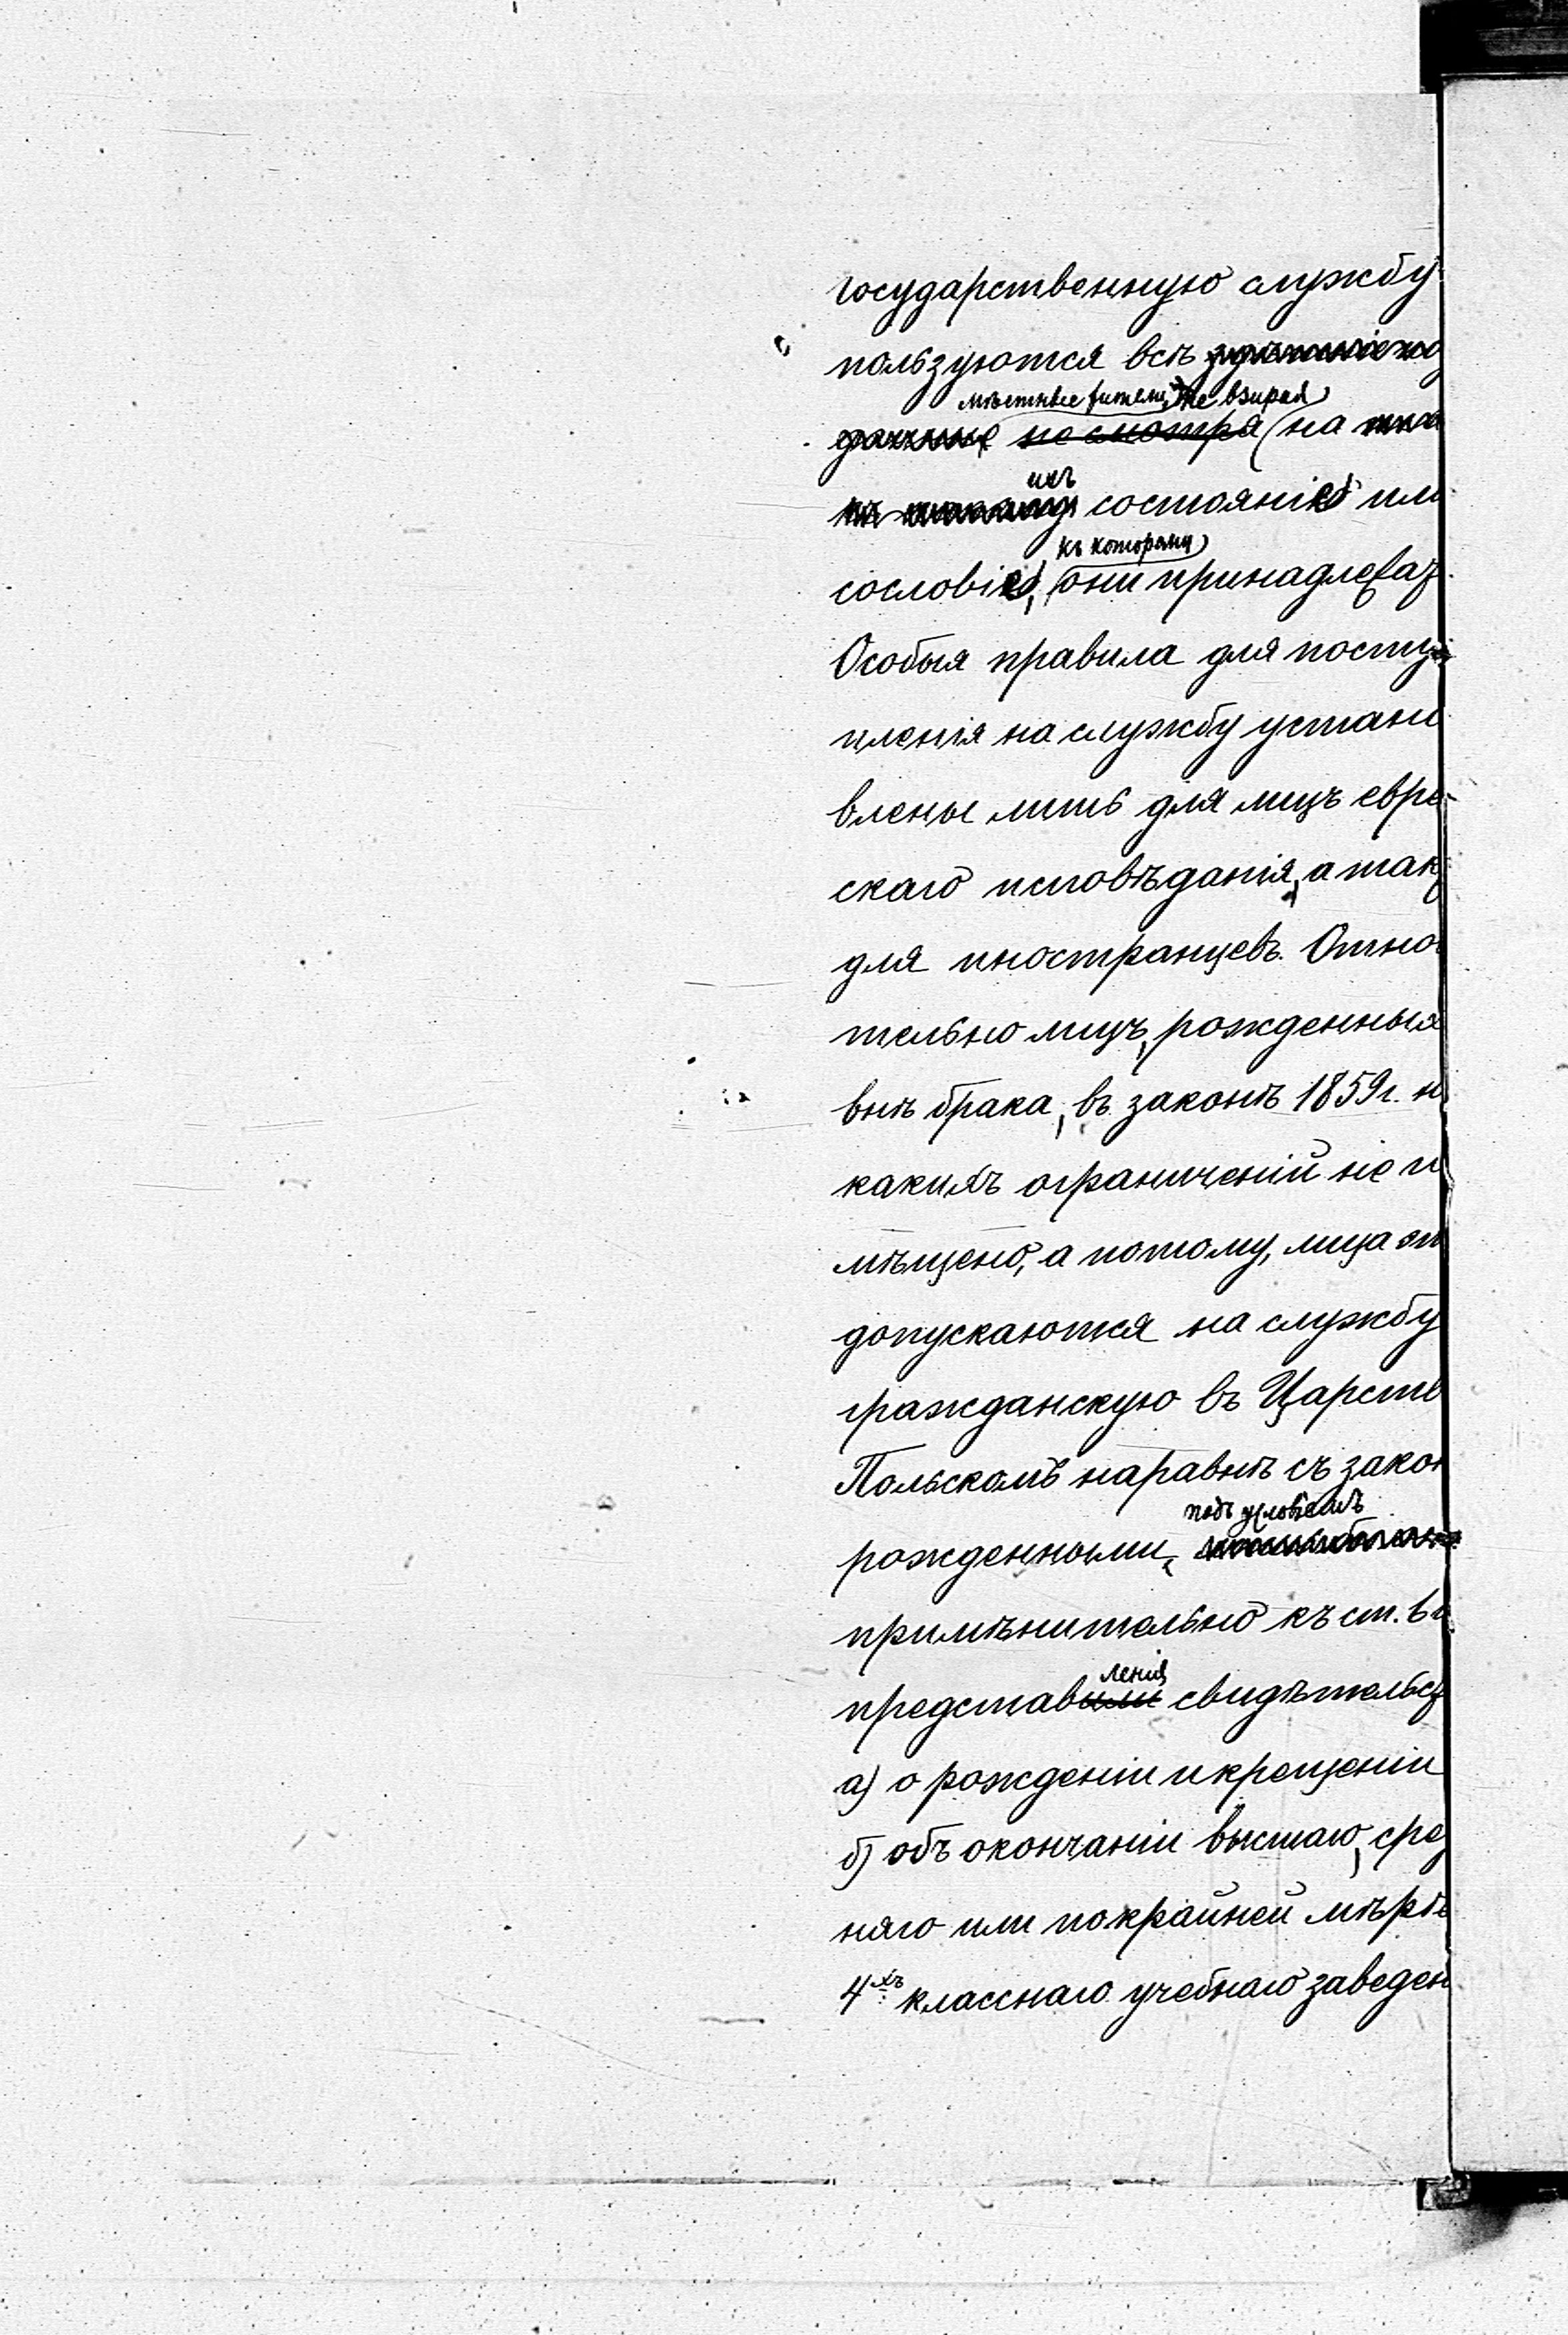 государственную службу
пользуются всѣ
мѣстные жители, не взирая
не смотря на
ихъ
состояніе или
къ которому
сословіе, они принадлежат
Особыя правила для посту-
пленія на службу устано
влены лишь для лицъ евре-
скаго исповѣданія, а так
для иностранцевъ. Относ
тельно лицъ, рожденныхъ
внѣ брака, въ законѣ 1859 г. н
какихъ ограниченій не п
мѣщено, а потому, лица эт
допускаются на службу
гражданскую въ Царств
Польскомъ наравнѣ съ закон
подъ условіемъ
рожденными,
примѣнительно къ ст.
ленія
представили свидѣтельст
а) о рожденіи и крещеніи
б) объ окончаніи высшаго, сред
няго или покрайней мѣрѣ
4хъ класснаго учебнаго заведен